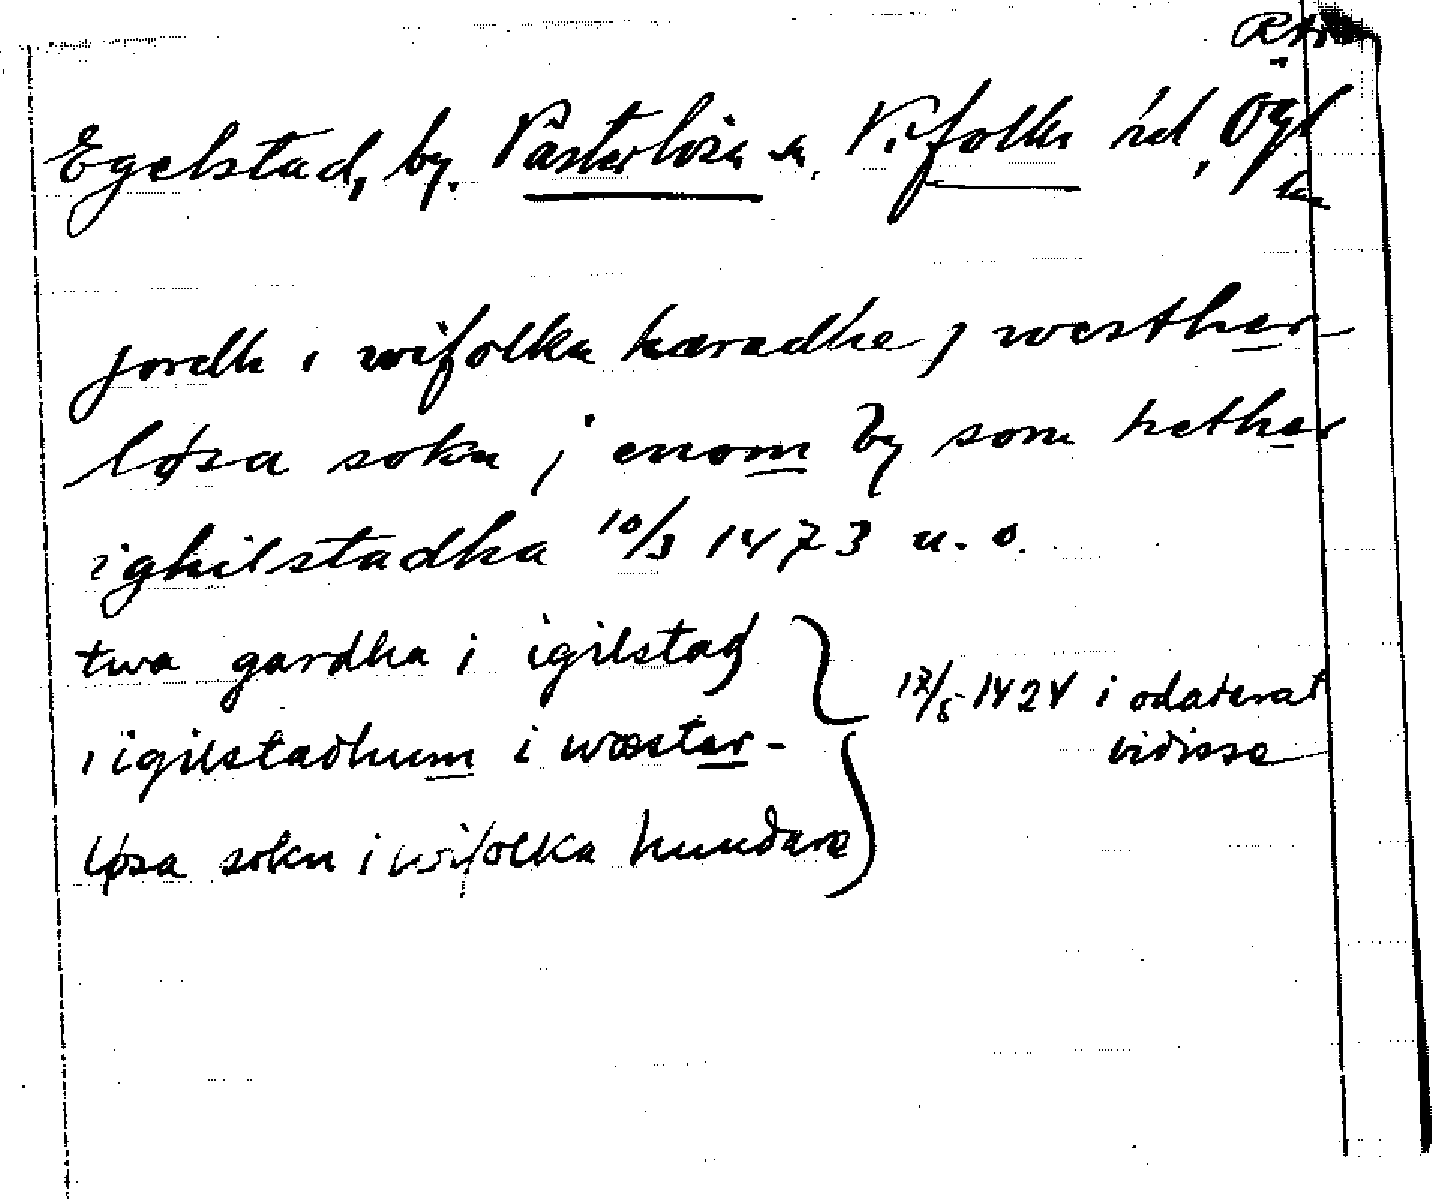 Egelstad, by. Västerlösa sn. Vifolka hd, Ögl
jordh i wifolka hæradhe j westher
løsa sokn j enom by som hether
ighilstadha 10/3 1473 u. o.
twa gardha i igilstad
i igilstadhum i wæster-
løsa sokn i wifolka hundare
17/5 1424 i odaterat
vidisse